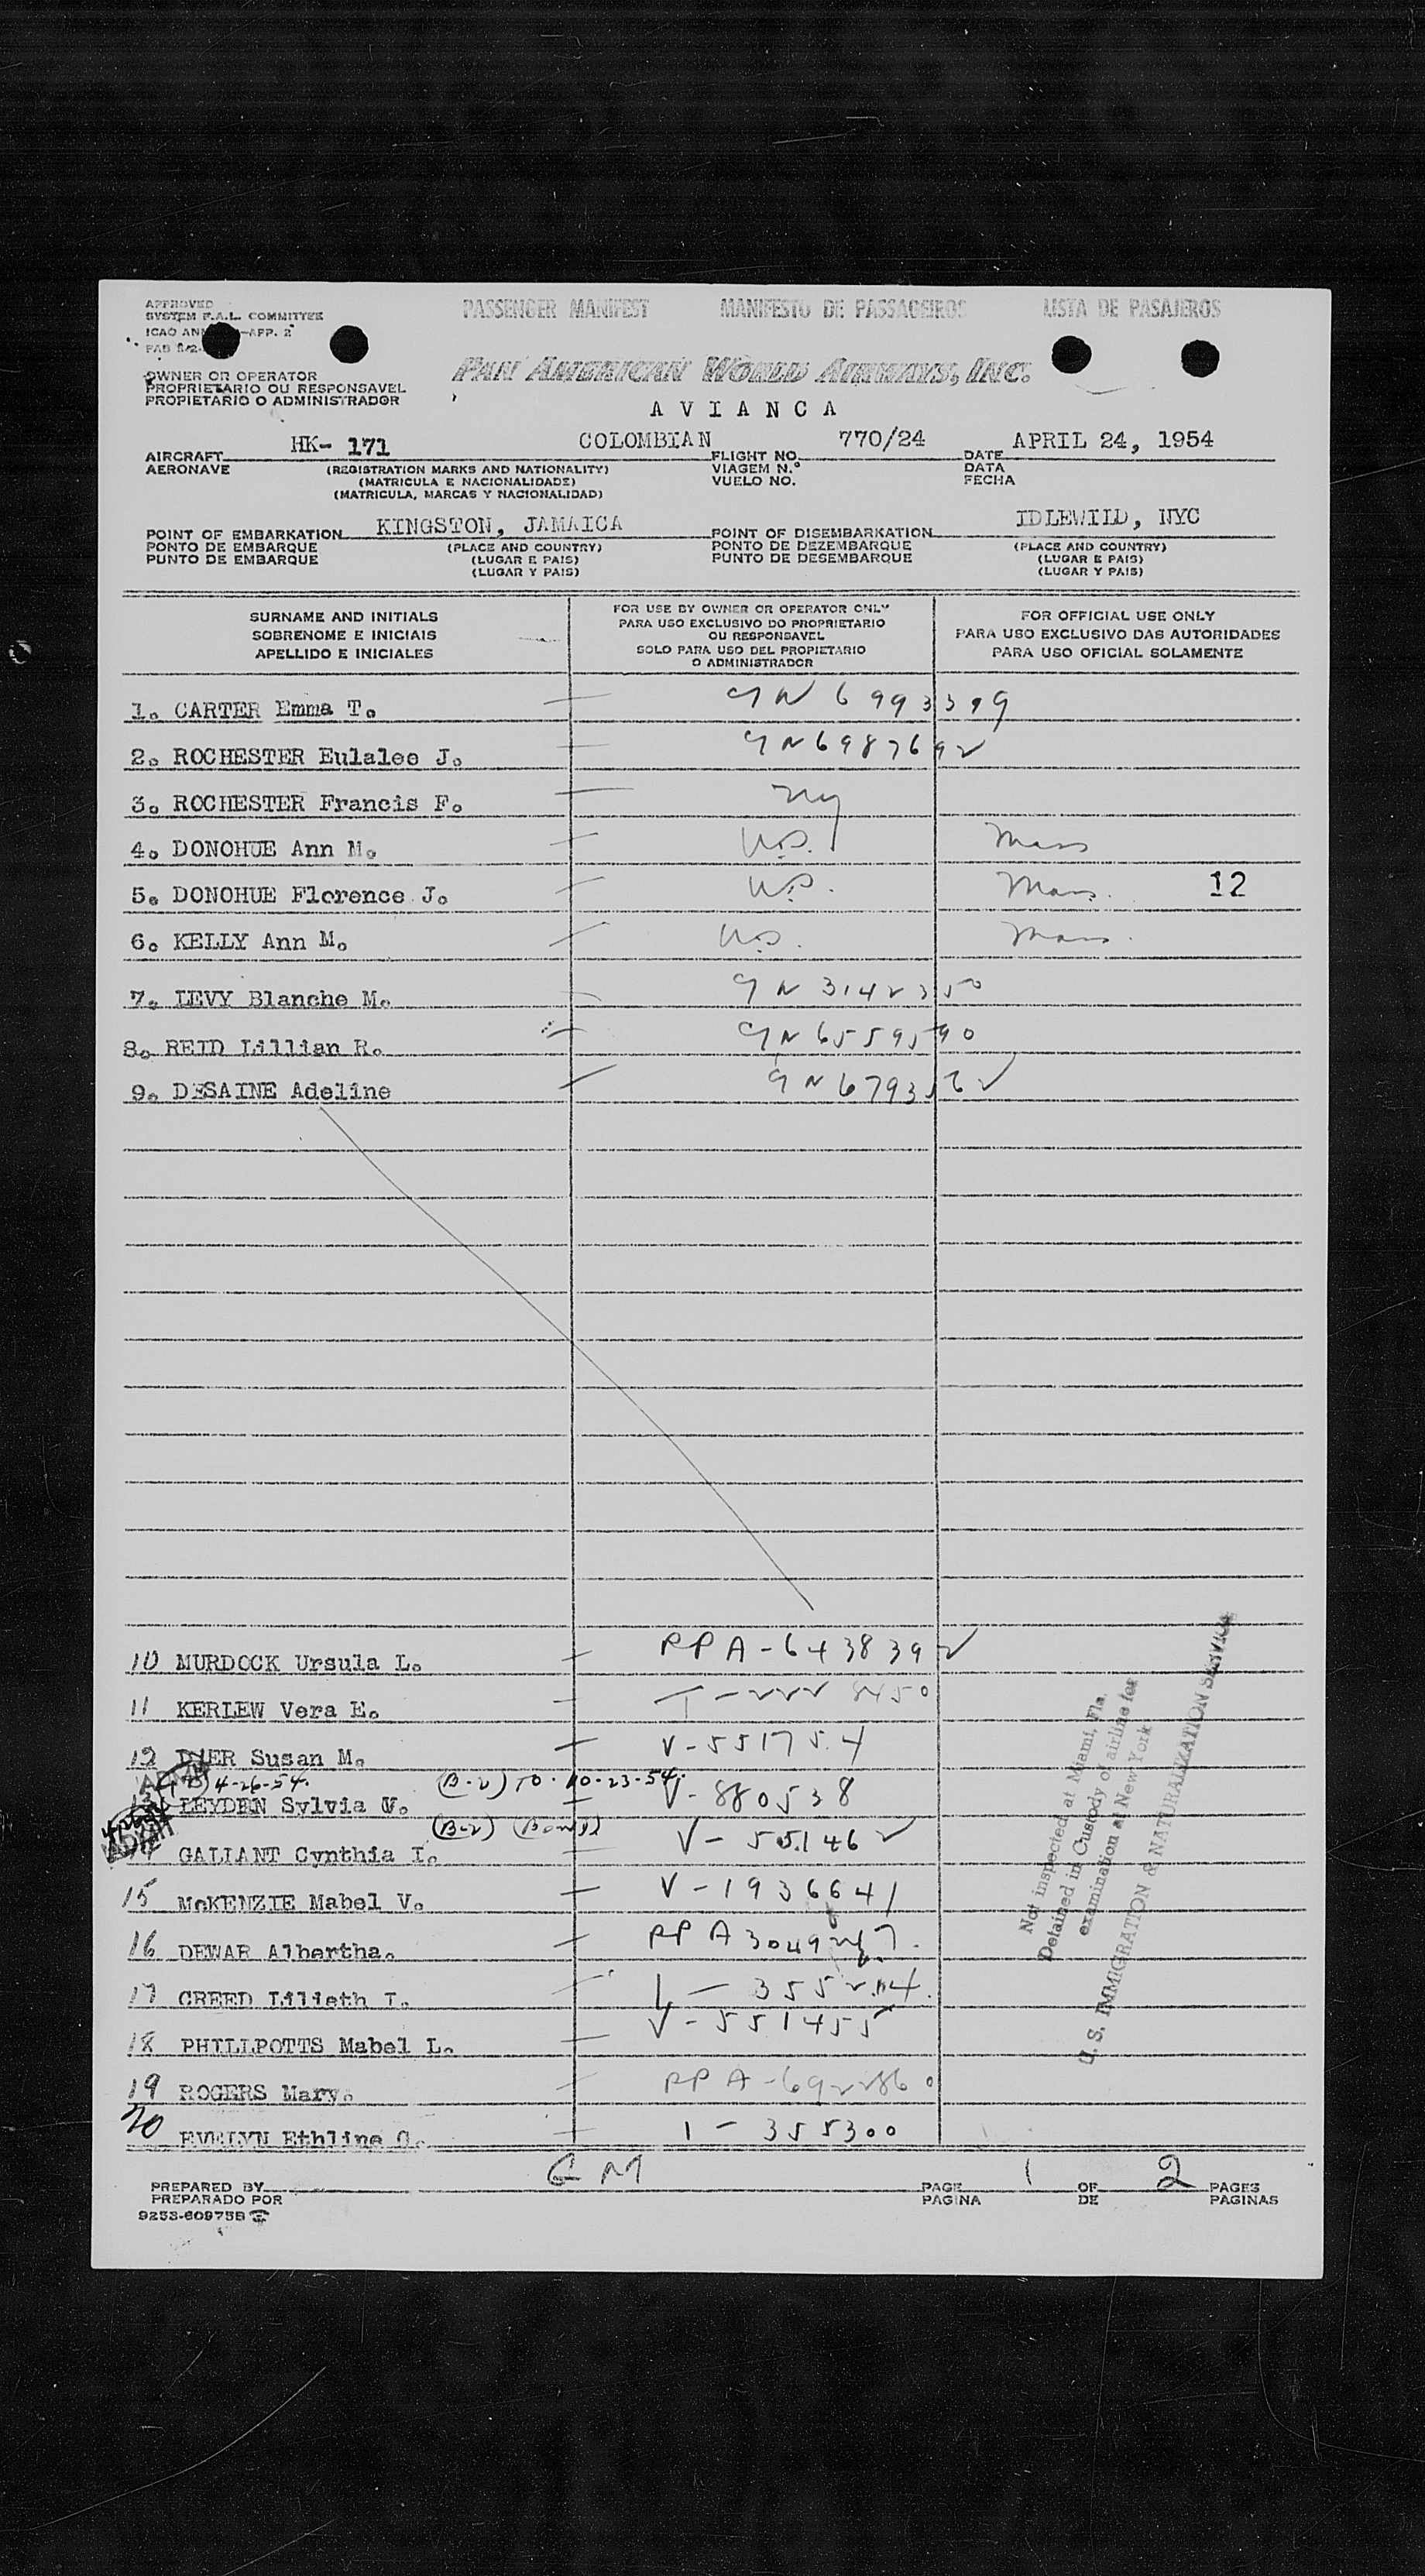 APPROVED
SYSTEM F.A.L. COMMITTEE
ICAO ANN —APP. 2
PASSENGER MANIFEST MANIFESTO DE PASSAGEIROS LISTA DE PASAJEROS
PAN AMERICAN WORLD AIRWAYS, INC.
OWNER OR OPERATOR
PROPRIETARIO OU RESPONSAVEL
PROPIETARIO O ADMINISTRADOR
AVIANCA
AIRCRAFT HK- 171 COLOMBIAN FLIGHT NO. 770/24 DATE APRIL 24, 1954
AERONAVE (REGISTRATION MARKS AND NATIONALITY) VIAGEM N.° DATA
(MATRICULA E NACIONALIDADE) VUELO NO. FECHA
(MATRICULA, MARCAS Y NACIONALIDAD)
POINT OF EMBARKATION KINGSTON, JAMAICA POINT OF DISEMBARKATION IDLEWILD, NYC
PONTO DE EMBARQUE (PLACE AND COUNTRY) PONTO DE DEZEMBARQUE (PLACE AND COUNTRY)
PUNTO DE EMBARQUE (LUGAR E PAIS) PUNTO DE DESEMBARQUE (LUGAR E PAIS)
(LUGAR Y PAIS) (LUGAR Y PAIS)
SURNAME AND INITIALS
SOBRENOME E INICIAIS
APELLIDO E INICIALES
FOR USE BY OWNER OR OPERATOR ONLY
PARA USO EXCLUSIVO DO PROPRIETARIO
OU RESPONSAVEL
SOLO PARA USO DEL PROPIETARIO
O ADMINISTRADOR
FOR OFFICIAL USE ONLY
PARA USO EXCLUSIVO DAS AUTORIDADES
PARA USO OFICIAL SOLAMENTE
1. CARTER Emma T.
2. ROCHESTER Eulalee J.
3. ROCHESTER Francis F. ny
4. DONOHUE Ann M. U.S. Mass
5. DONOHUE Florence J. U.S. Mass. 12
6. KELLY Ann M. U.S. Mass.
7. LEVY Blanche M.
8. REID Lillian R.
9. DESAINE Adeline
10 MURDOCK Ursula L. PPA-643839
11 KERLEW Vera E.
12 DYER Susan M. V-551754
4-26-54. (B-2) TO. 10-23-54.
LEYDEN Sylvia V. V-880538
(B-2) (Bond)
GALLANT Cynthia I. V-505146
15 McKENZIE Mabel V. V-1936641
16 DEWAR Albertha.
17 CREED Lilieth I.
18 PHILLPOTTS Mabel L. V-551455
19 ROGERS Mary.
20 EVELYN Ethline O. 1-355300
Not inspected at Miami, Fla.
Detained in Custody of airline for
examination at New York
U. S. IMMIGRATION & NATURALIZATION SERVICE
PREPARED BY GM PAGE 1 OF 2 PAGES
PREPARADO POR PAGINA DE PAGINAS
9253-60975B